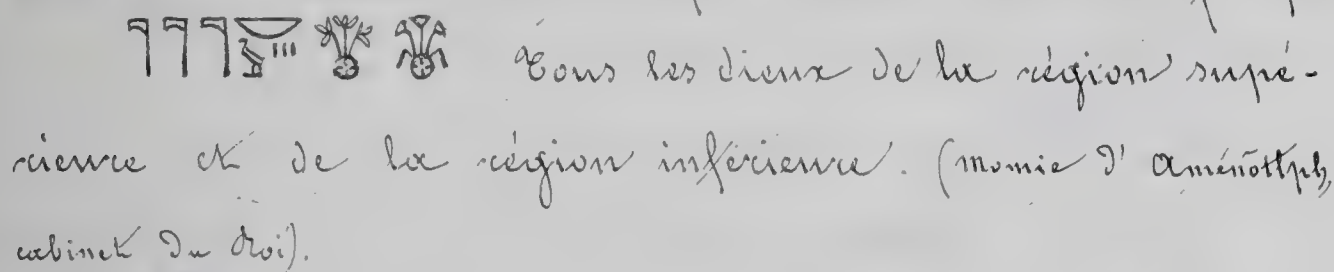 𓊹𓊹𓊹𓎟𓅱𓏥 Tous les dieux de la région supé-
rieure et de la région inférieure. (momie d'Aménôttph,
cabinet du Roi).